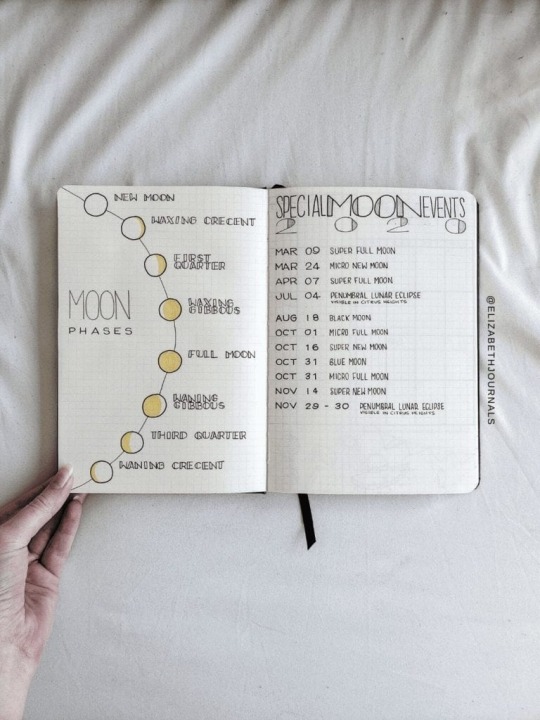 NEW MOON
WAXING CRECENT
FIRST
QUARTER
MOON
PHASES
WAXING
GIBBOUS
FULL MOON
WANING
GIBBOUS
THIRD QUARTER
WANING CRECENT
SPECIAL MOON EVENTS
2020
MAR 09 SUPER FULL MOON
MAR 24 MICRO NEW MOON
APR 07 SUPER FULL MOON
JUL 04 PENUMBRAL LUNAR ECLIPSE
VISIBLE IN CITRUS HEIGHTS
AUG 18 BLACK MOON
OCT 01 MICRO FULL MOON
OCT 16 SUPER NEW MOON
OCT 31 BLUE MOON
OCT 31 MICRO FULL MOON
NOV 14 SUPER NEW MOON
NOV 29 - 30 PENUMBRAL LUNAR ECLIPSE
VISIBLE IN CITRUS HEIGHTS
@ELIZABETHJOURNALS